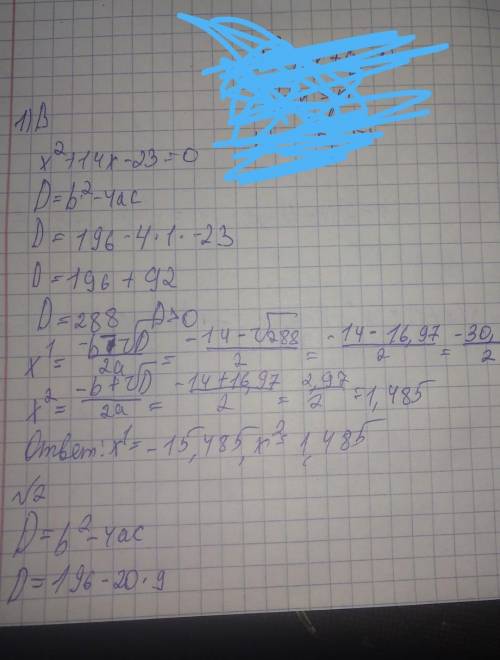 1) В
x²+14x-23=0
D=b²-4ac
D=196-4·1·-23
D=196+92
D=288 D>0
x¹=(-b-√D)/2a=(-14-√288)/2=(-14-16,97)/2=-30,/2
x²=(-b+√D)/2a=(-14+16,97)/2=2,97/2=1,485
Ответ: x¹=-15,485, x²=1,485
√2
D=b²-4ac
D=196-20·9